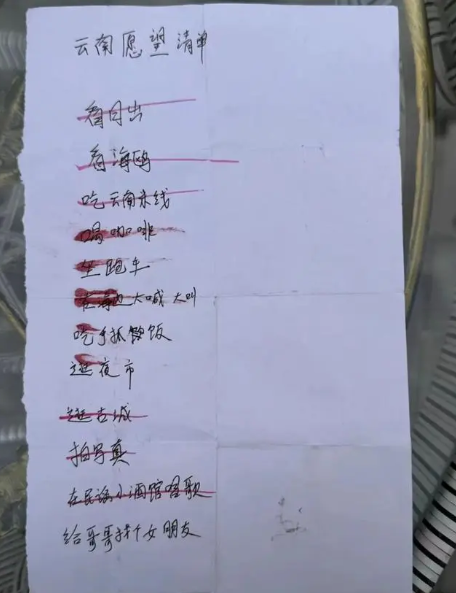 云南愿望清单
看日出
看海鸥
吃云南米线
喝咖啡
坐跑车
在海边大喊大叫
吃手抓饭
逛夜市
逛古城
拍写真
在民谣小酒馆唱歌
给哥哥找个女朋友